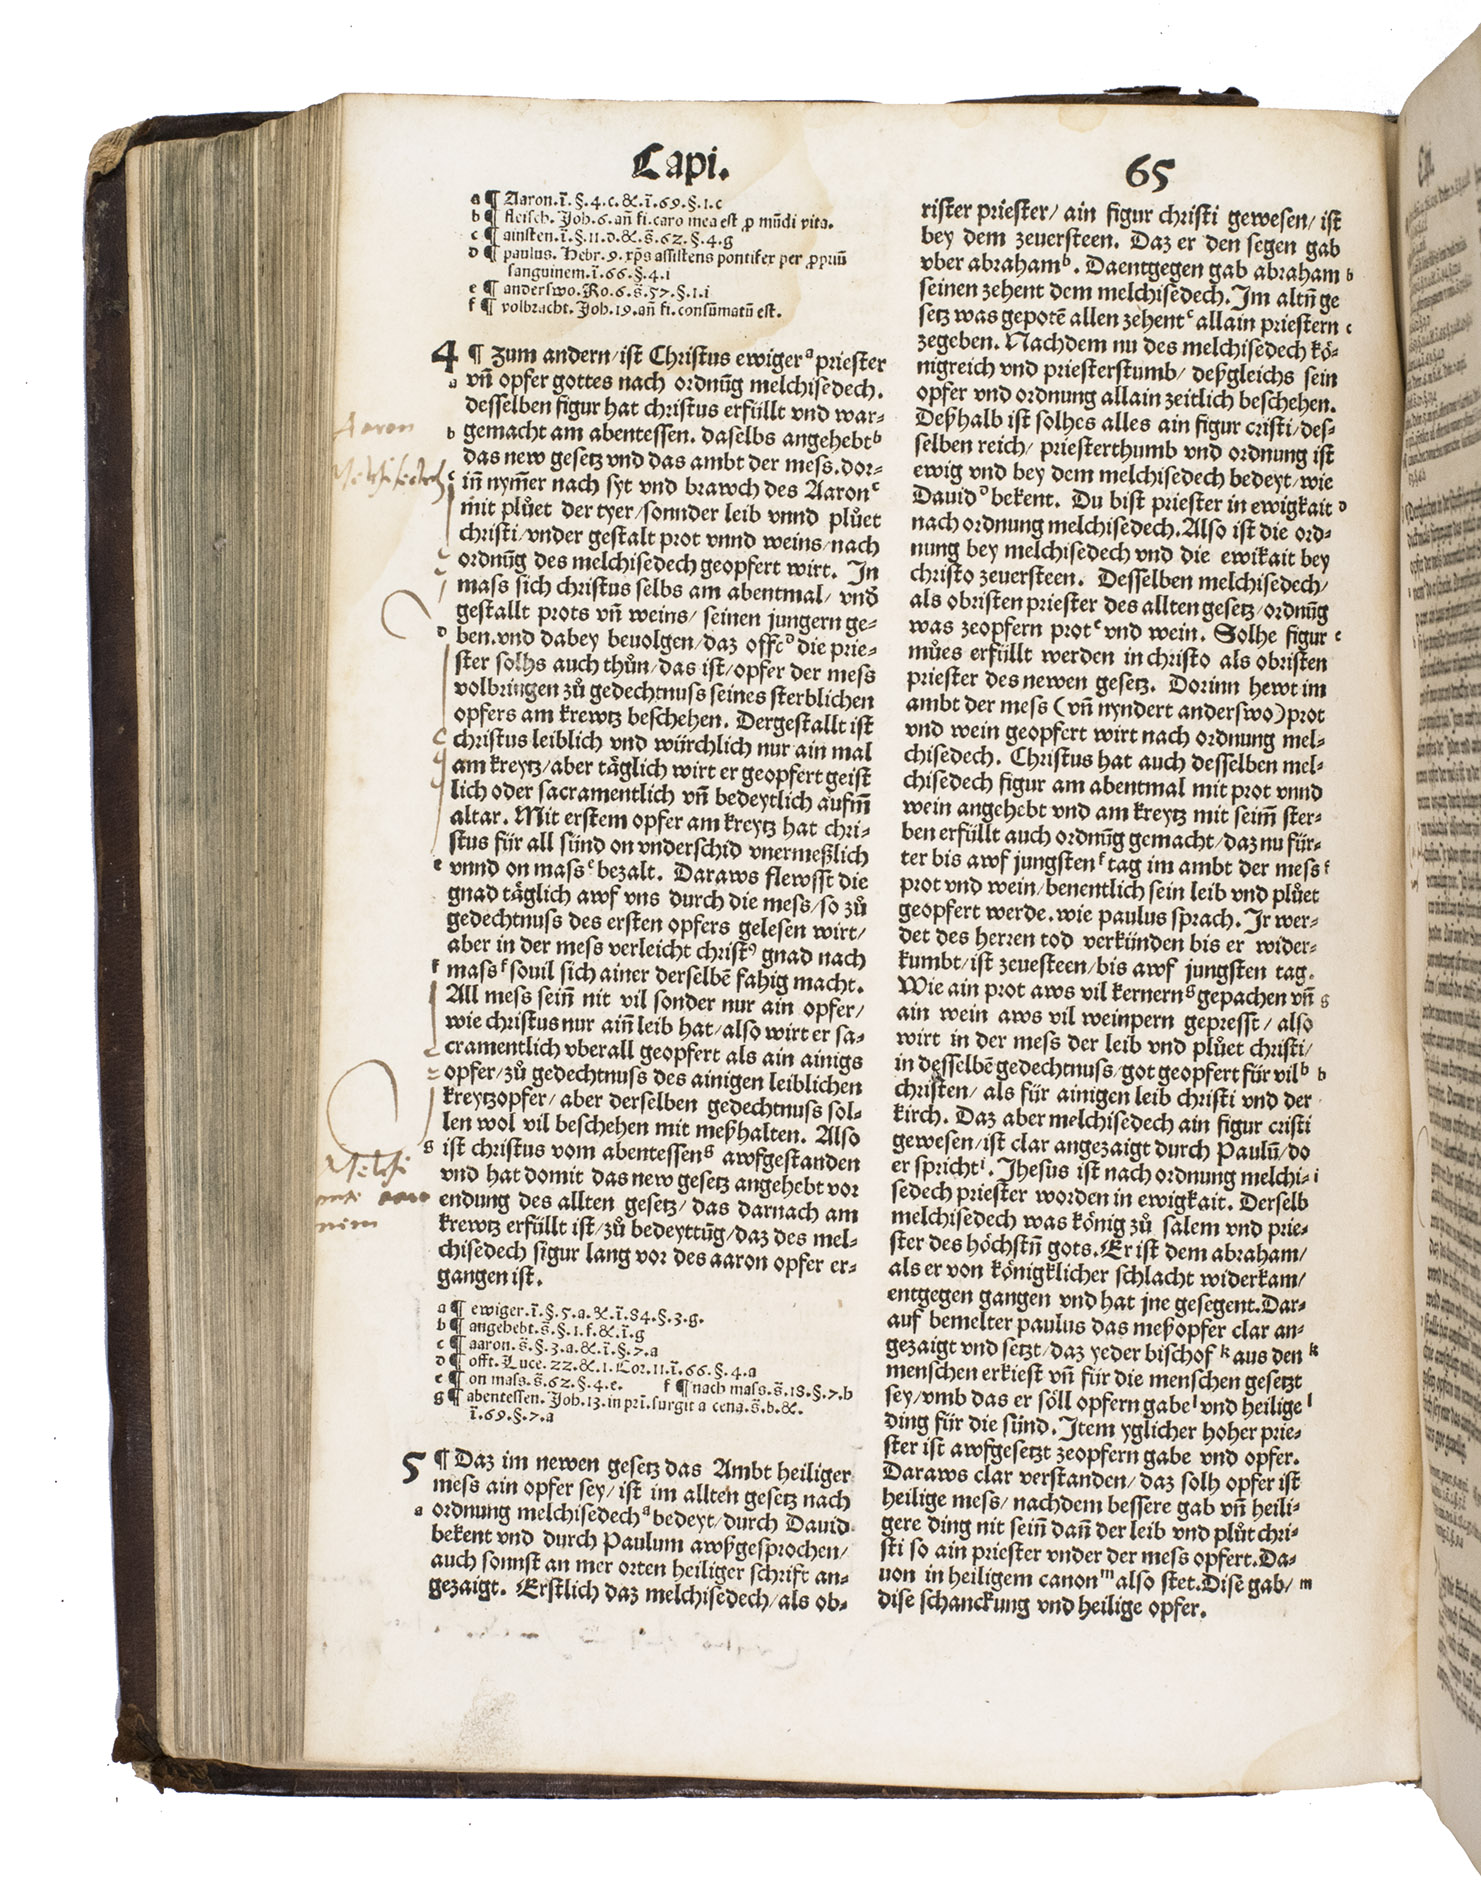 Capi.
65
a ¶ Aaron.ī.§.4.c.&.ī.69.§.1.c
b ¶ fleisch. Joh.6.añ fi.caro mea est ꝓ mūdi vita.
c ¶ ainsten.ī.§.11.d.&.s̄.62.§.4.g
d ¶ paulus. Hebr.9.xp̄s assistens pontifex per ꝓpriū
sanguinem.ī.66.§.4.i
e ¶ anderswo.Ro.6.s̄.57.§.1.i
f ¶ volbracht. Joh.19.añ fi.consūmatū est.
4 ¶ Zum andern/ist Christus ewigerᵃ priester
a vñ opfer gottes nach ordnūg melchisedech.
desselben figur hat christus erfüllt vnd war-
b gemacht am abentessen. daselbs angehebtᵇ
das new gesetz vnd das ambt der mess.dor-
c iñ nym̄er nach syt vnd brawch des Aaronᶜ
mit plůet der tyer/sonnder leib vnnd plůet
christi/vnder gestalt prot vnnd weins/nach
ordnūg des melchisedech geopfert wirt. In
mass sich christus selbs am abentmal/ vnd̄
gestallt prots vñ weins/ seinen jungern ge-
d ben.vnd dabey beuolgen/daz offtᵈ die prie-
ster solhs auch thůn/das ist/opfer der mess
volbringen zů gedechtnuss seines sterblichen
opfers am krewtz beschehen. Dergestallt ist
christus leiblich vnd würchlich nur ain mal
am kreytz/aber täglich wirt er geopfert geist
lich oder sacramentlich vñ bedeytlich aufm̄
altar. Mit erstem opfer am kreytz hat chri-
stus für all sünd on vnderschid vnermeßlich
e vnnd on massᵉ bezalt. Daraws flewsst die
gnad täglich awf vns durch die mess/so zů
gedechtnuss des ersten opfers gelesen wirt/
aber in der mess verleicht christꝰ gnad nach
f massᶠ souil sich ainer derselbē fahig macht.
All mess seiñ nit vil sonder nur ain opfer/
wie christus nur aiñ leib hat/also wirt er sa-
cramentlich vberall geopfert als ain ainigs
opfer/zů gedechtnuss des ainigen leiblichen
kreytzopfer/aber derselben gedechtnuss sol-
len wol vil beschehen mit meßhalten. Also
g ist christus vom abentessenᵍ awfgestanden
vnd hat domit das new gesetz angehebt vor
endung des allten gesetz/ das darnach am
krewtz erfüllt ist/zů bedeyttūg/daz des mel-
chisedech figur lang vor des aaron opfer er-
gangen ist.
Aaron
Melchisedech
Melchi
a ¶ ewiger.ī.§.5.a.&.ī.84.§.3.g.
b ¶ angehebt.s̄.§.1.f.&.ī.g
c ¶ aaron.s̄.§.3.a.&.ī.§.7.a
d ¶ offt.Luce.22.&.1.Cor.11.ī.66.§.4.a
e ¶ on mass.s̄.62.§.4.e. f ¶ nach mass.s̄.18.§.7.b
g ¶ abentessen. Joh.13.in prī.surgit a cena.s̄.b.&.
ī.69.§.7.a
5 ¶ Daz im newen gesetz das Ambt heiliger
mess ain opfer sey/ist im allten gesetz nach
a ordnung melchisedechᵃ bedeyt/durch Dauid
bekent vnd durch Paulum awßgesprochen/
auch sonnst an mer orten heiliger schrift an-
gezaigt. Erstlich daz melchisedech/als ob-
rister priester/ ain figur christi gewesen/ist
bey dem zeuersteen. Daz er den segen gab
vber abrahamᵇ. Daentgegen gab abraham b
seinen zehent dem melchisedech.Im altñ ge
setz was gepotē allen zehentᶜ allain priestern c
zegeben. Nachdem nu des melchisedech kö-
nigreich vnd priesterstumb/ deßgleichs sein
opfer vnd ordnung allain zeitlich beschehen.
Deßhalb ist solhes alles ain figur cristi/des-
selben reich/ priesterthumb vnd ordnung ist
ewig vnd bey dem melchisedech bedeyt/wie
Dauidᵈ bekent. Du bist priester in ewigkait d
nach ordnung melchisedech.Also ist die ord-
nung bey melchisedech vnd die ewikait bey
christo zeuersteen. Desselben melchisedech/
als obristen priester des allten gesetz/ordnūg
was zeopfern protᵉ vnd wein. Solhe figur e
můes erfüllt werden in christo als obristen
priester des newen gesetz. Dorinn hewt im
ambt der mess (vñ nyndert anderswo)prot
vnd wein geopfert wirt nach ordnung mel-
chisedech. Christus hat auch desselben mel-
chisedech figur am abentmal mit prot vnnd
wein angehebt vnd am kreytz mit seim̄ ster-
ben erfüllt auch ordnūg gemacht/daz nu für-
ter bis awf jungstenᶠ tag im ambt der mess f
prot vnd wein/benentlich sein leib vnd plůet
geopfert werde.wie paulus sprach. Ir wer-
det des herren tod verkünden bis er wider-
kumbt/ist zeuesteen/bis awf jungsten tag.
Wie ain prot aws vil kernernᵍ gepachen vñ g
ain wein aws vil weinpern gepresst/ also
wirt in der mess der leib vnd plůet christi/
in desselbē gedechtnuss/got geopfert für vilʰ h
christen/ als für ainigen leib christi vnd der
kirch. Daz aber melchisedech ain figur cristi
gewesen/ist clar angezaigt durch Paulū/do
er sprichtⁱ. Jhesus ist nach ordnung melchi- i
sedech priester worden in ewigkait. Derselb
melchisedech was könig zů salem vnd prie-
ster des höchstñ gots.Er ist dem abraham/
als er von königklicher schlacht widerkam/
entgegen gangen vnd hat jne gesegent.Dar-
auf bemelter paulus das meßopfer clar an-
gezaigt vnd setzt/daz yeder bischofᵏ aus den k
menschen erkiest vñ für die menschen gesetzt
sey/vmb das er söll opfern gabeˡ vnd heilige l
ding für die sünd. Item yglicher hoher prie-
ster ist awfgesetzt zeopfern gabe vnd opfer.
Daraws clar verstanden/daz solh opfer ist
heilige mess/nachdem bessere gab vñ heili-
gere ding nit seiñ dañ der leib vnd plůt chri-
sti so ain priester vnder der mess opfert.Da-
uon in heiligem canonᵐ also stet.Dise gab/ m
dise schanckung vnd heilige opfer.